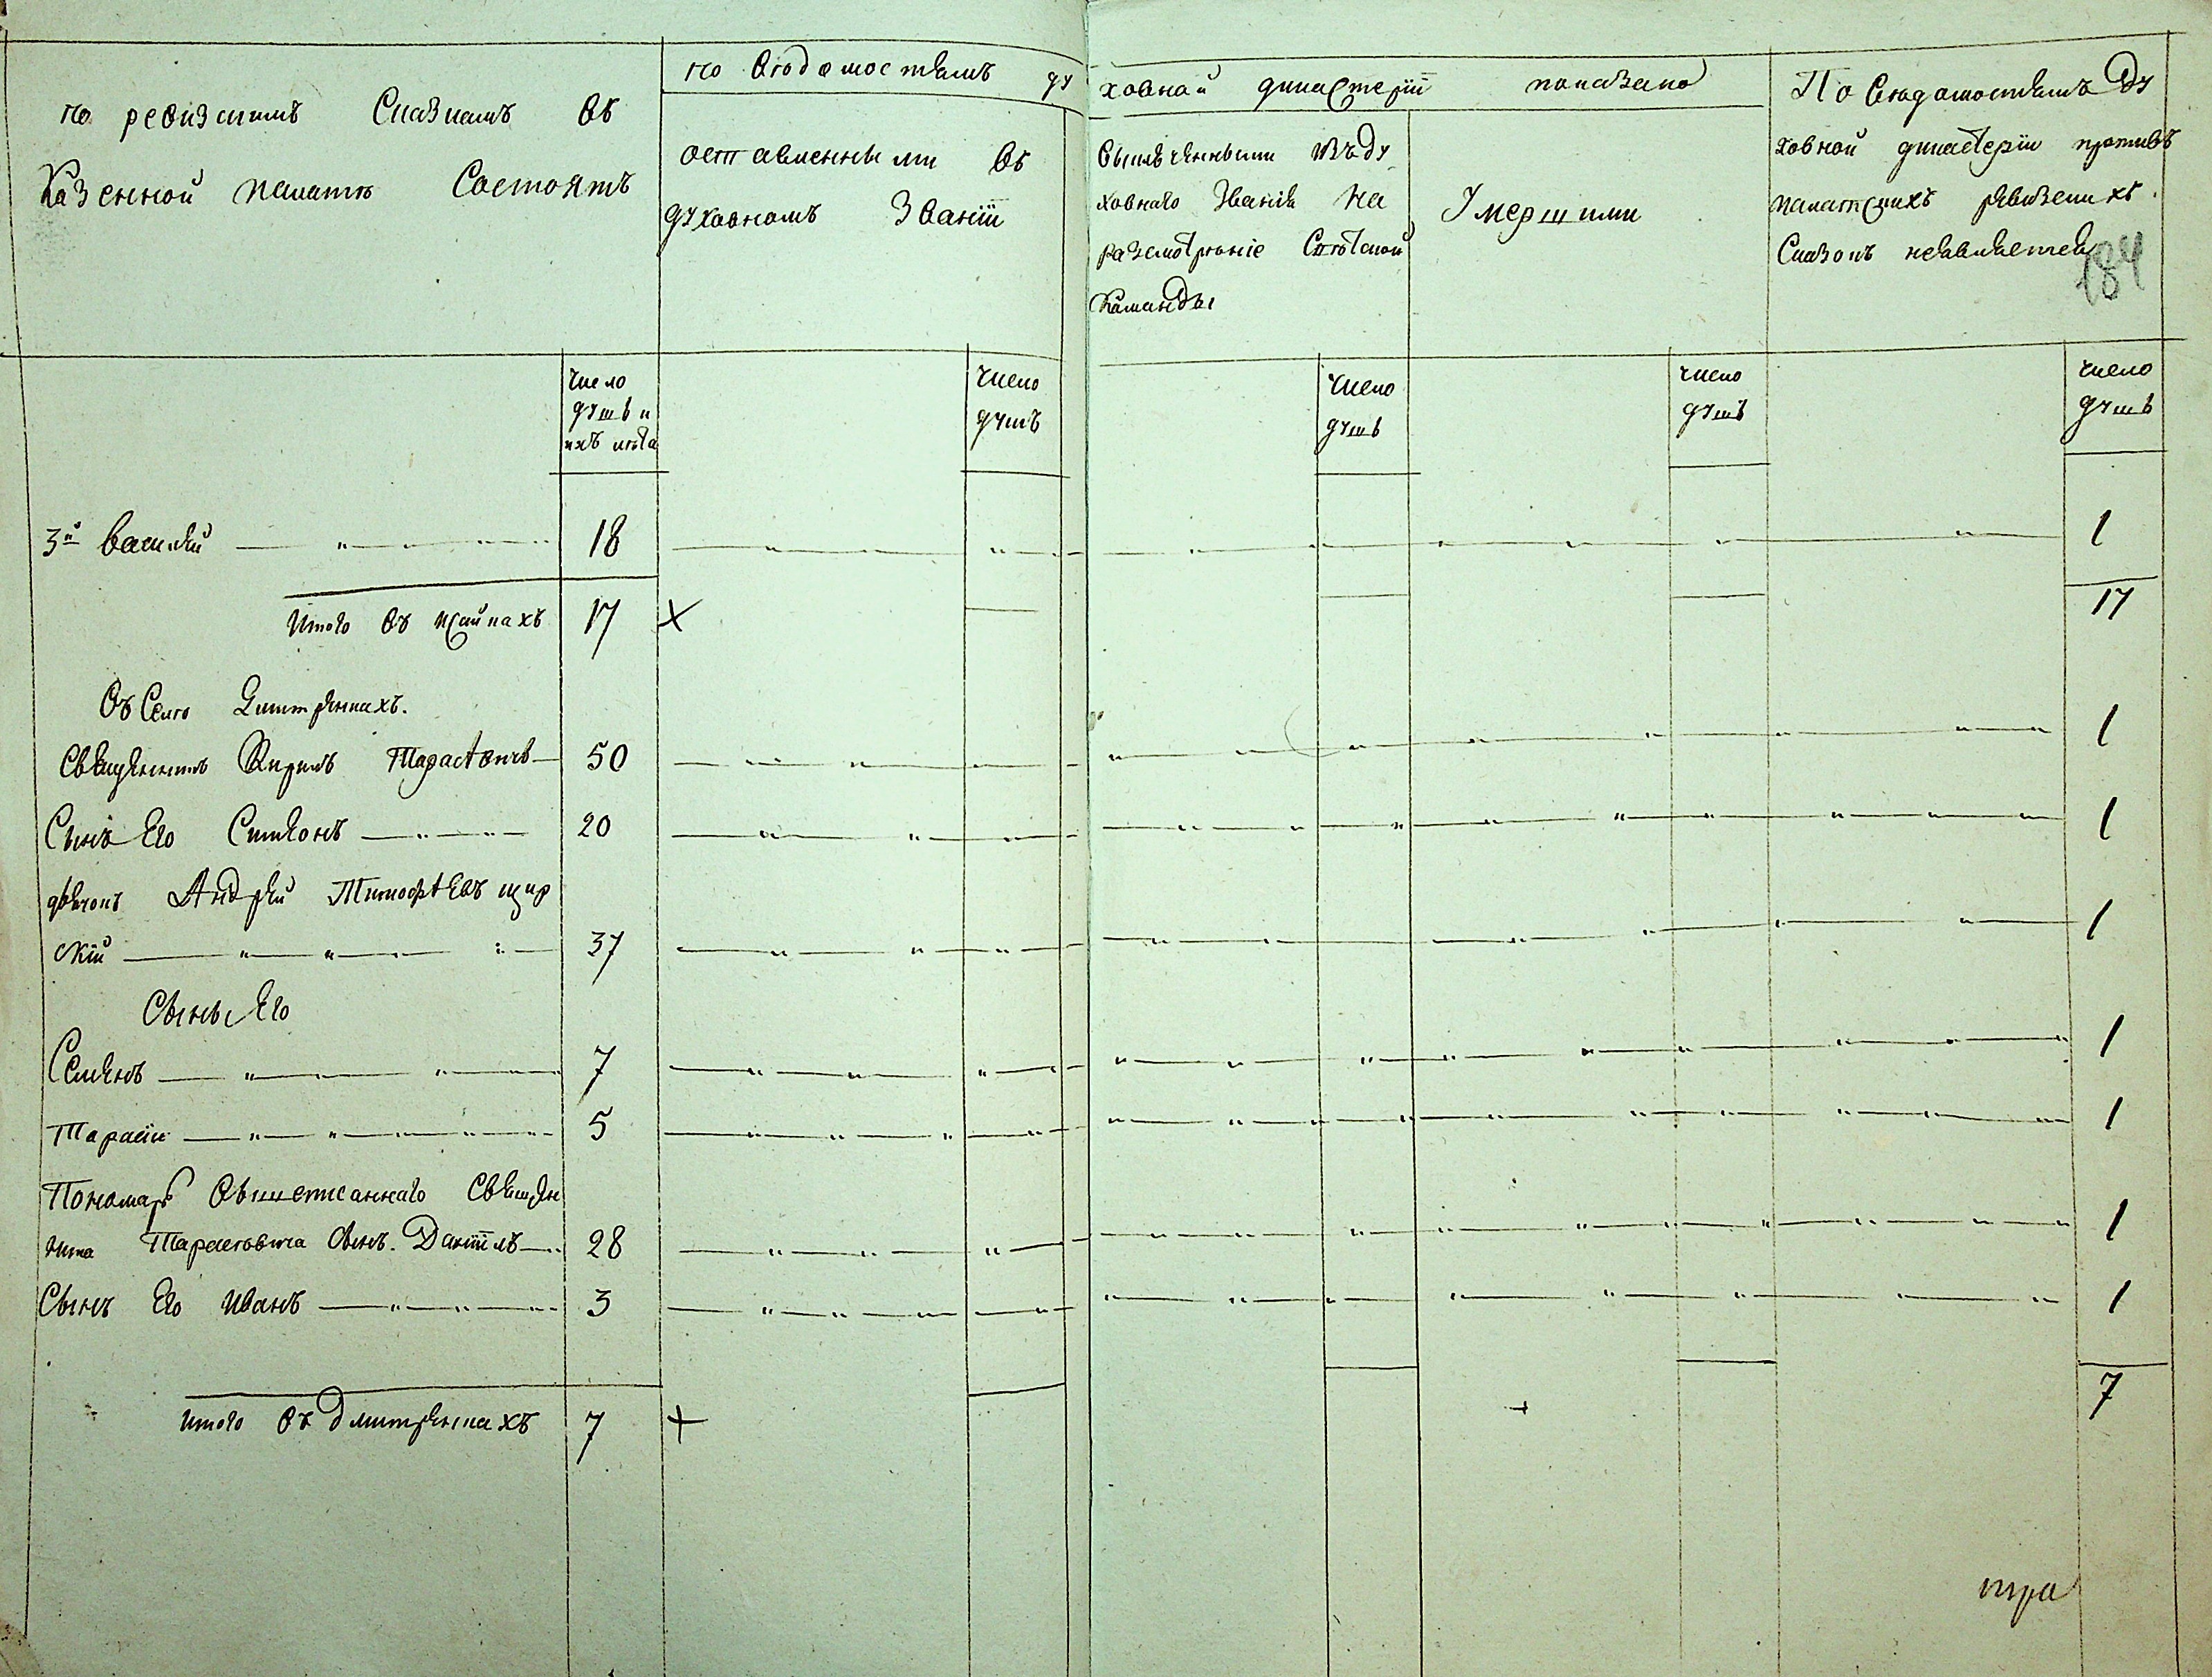 по ревизскимъ Сказкамъ въ
Казенной палатѣ Состоятъ
по вѣдомостямъ ду
ховной дикастерïи показано
оставленными въ
духовномъ Званïи
выключенными изъ ду
ховнаго Званiя на
разсмотрѣнiе Свѣтской
Команды
Умершими
По вѣдомостямъ Ду
ховной дикастерïи противъ
палатскихъ ревизскихъ
Сказокъ неявляется
184
Число
душъ и
ихъ лѣта
число
душъ
число
душъ
число
душъ
число
душъ
3й василий 18 1
Итого въ 17 17
въ Селѣ Дмитренкахъ.
Священникъ Кирилъ Тарасѣвичъ 50 1
Сынъ Его Симеонъ 20 1
дьячокъ Андрей Тимофѣевъ щир
скïй 37 1
Сыны Его
Семенъ 7 1
Тарасïи 5 1
Пономарь вышеписаннаго Священ
ника Тарасѣвича сынъ. Данïилъ 28 1
Сынъ Его Иванъ 3 1
Итого въ дмитренкахъ 7 7